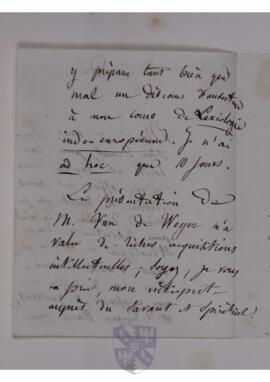 y prépare tant bien que
mal un discours d'ouverture
à mon cours de Lexiologie
indo-européenne. Je n'ai
ad hoc que 10 jours.
La présentation de
M. Van de Weyer m'a
valu de riches acquisitions
intellectuelles; soyez, je vous
en prie, mon interprète
auprès du savant et spirituel